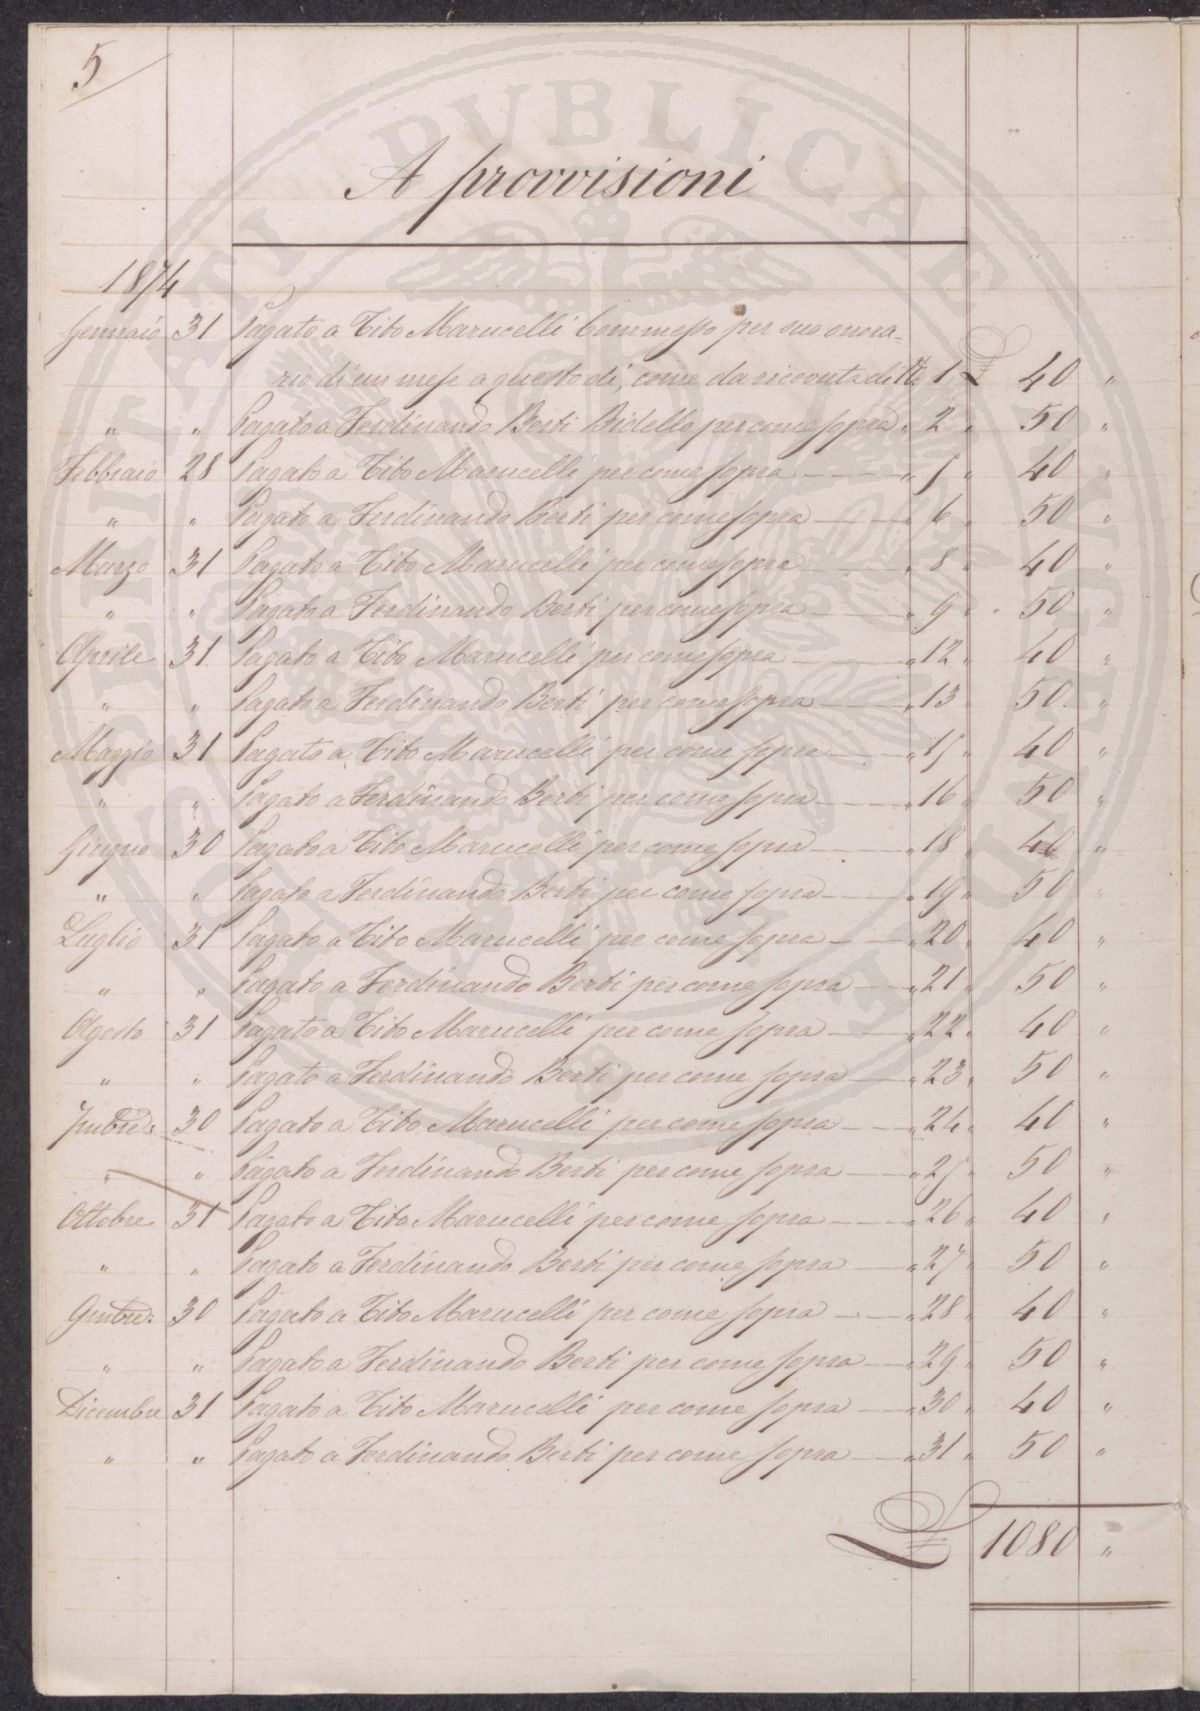 5
A provvisioni
1874
Gennaio 31 Pagato a Tito Marucelli Commesso per suo onora=
rio di un mese a questo dì, come da ricevuta di N.° 1 £ 40 "
" " Pagato a Ferdinando Berti Bidello per come sopra " 2 " 50 "
Febbraio 28 Pagato a Tito Marucelli per come sopra " 5 " 40 "
" " Pagato a Ferdinando Berti per come sopra " 6 " 50 "
Marzo 31 Pagato a Tito Marucelli per come sopra " 8 " 40 "
" " Pagato a Ferdinando Berti per come sopra " 9 " 50 "
Aprile 31 Pagato a Tito Marucelli per come sopra " 12 " 40 "
" " Pagato a Ferdinando Berti per come sopra " 13 " 50 "
Maggio 31 Pagato a Tito Marucelli per come sopra " 15 " 40 "
" " Pagato a Ferdinando Berti per come sopra " 16 " 50 "
Giugno 30 Pagato a Tito Marucelli per come sopra " 18 " 40 "
" " Pagato a Ferdinando Berti per come sopra " 19 " 50 "
Luglio 31 Pagato a Tito Marucelli per come sopra " 20 " 40 "
" " Pagato a Ferdinando Berti per come sopra " 21 " 50 "
Agosto 31 Pagato a Tito Marucelli per come sopra " 22 " 40 "
" " Pagato a Ferdinando Berti per come sopra " 23 " 50 "
7mbre: 30 Pagato a Tito Marucelli per come sopra " 24 " 40 "
" " Pagato a Ferdinando Berti per come sopra " 25 " 50 "
Ottobre 31 Pagato a Tito Marucelli per come sopra " 26 " 40 "
" " Pagato a Ferdinando Berti per come sopra " 27 " 50 "
9mbre: 30 Pagato a Tito Marucelli per come sopra " 28 " 40 "
" " Pagato a Ferdinando Berti per come sopra " 29 " 50 "
Dicembre 31 Pagato a Tito Marucelli per come sopra " 30 " 40 "
" " Pagato a Ferdinando Berti per come sopra " 31 " 50 "
£ 1080 "